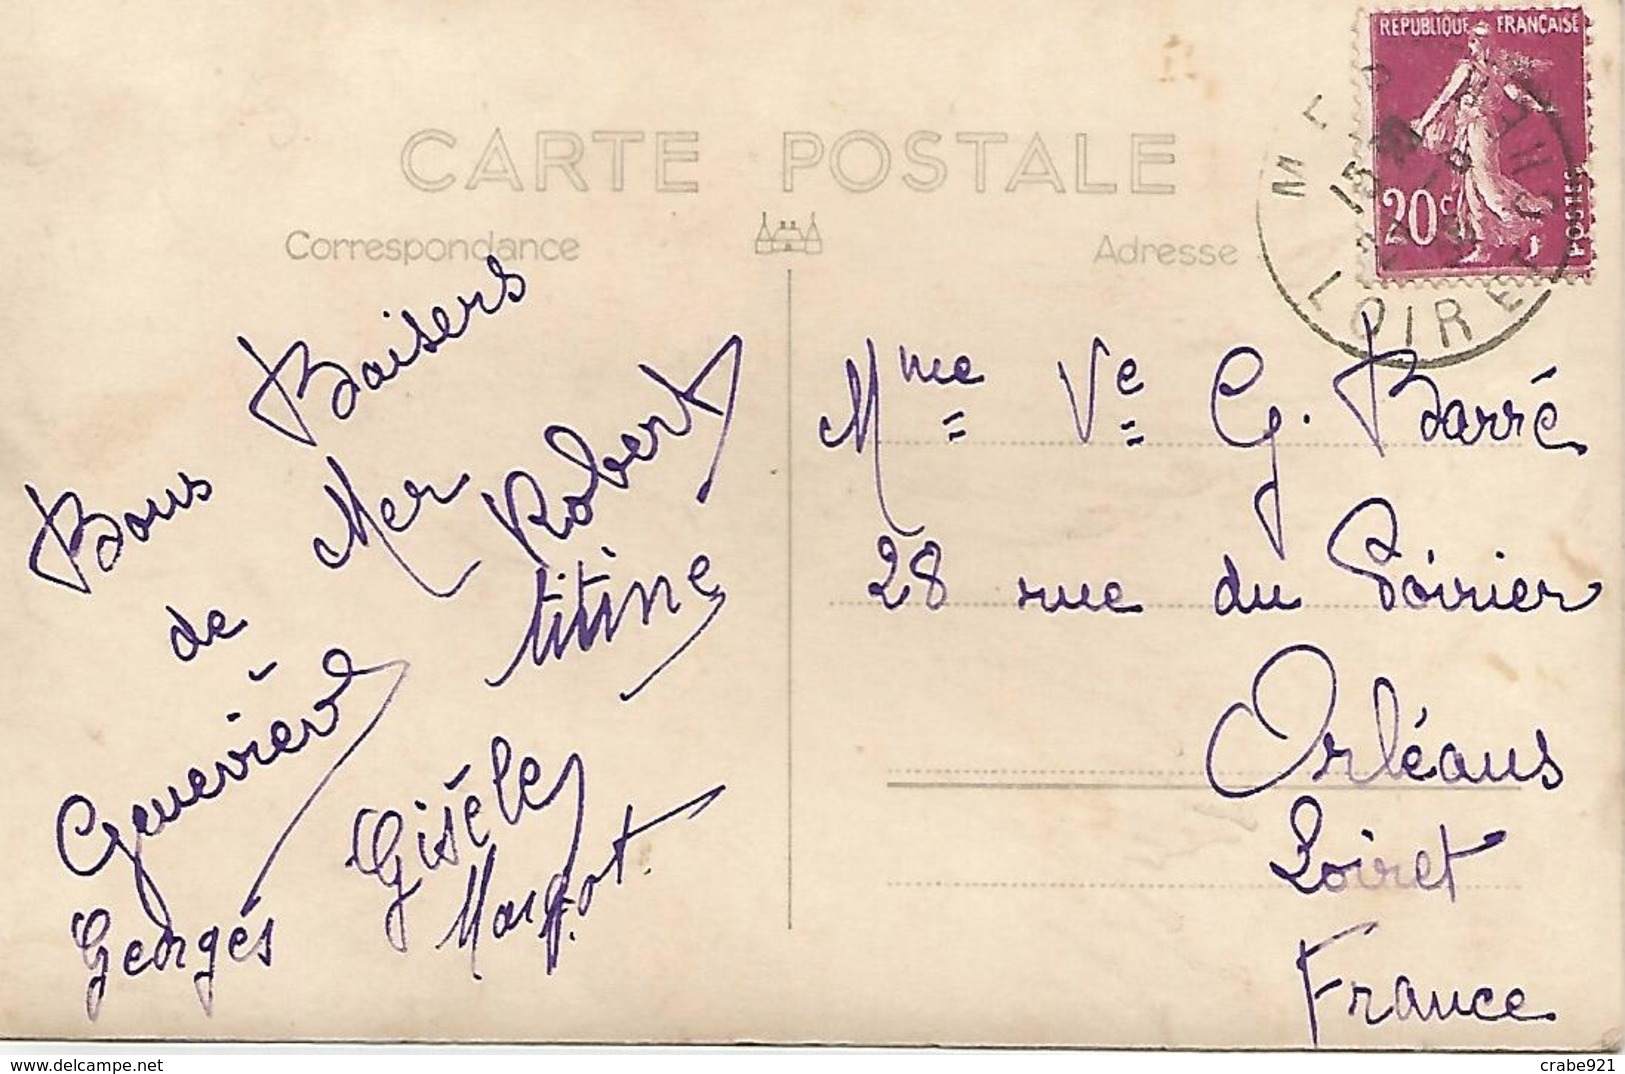 REPUBLIQUE FRANÇAISE
20c
POSTES
LOIRET
CARTE POSTALE
Correspondance
Adresse
Bons Baisers
de Mer
Robert
titine
Geneviève
Gisèle
Georges
Margot.
Mme Ve G. Barré
28 rue du Poirier
Orléans
Loiret
France
crabe921